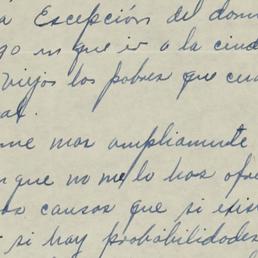 a Escepción del dom
go en que ir a la ciud
Viejos los pobres que cu
al.
me mas ampliamente
que no me lo has ofre
as causas que si exis
si hay probabilidades